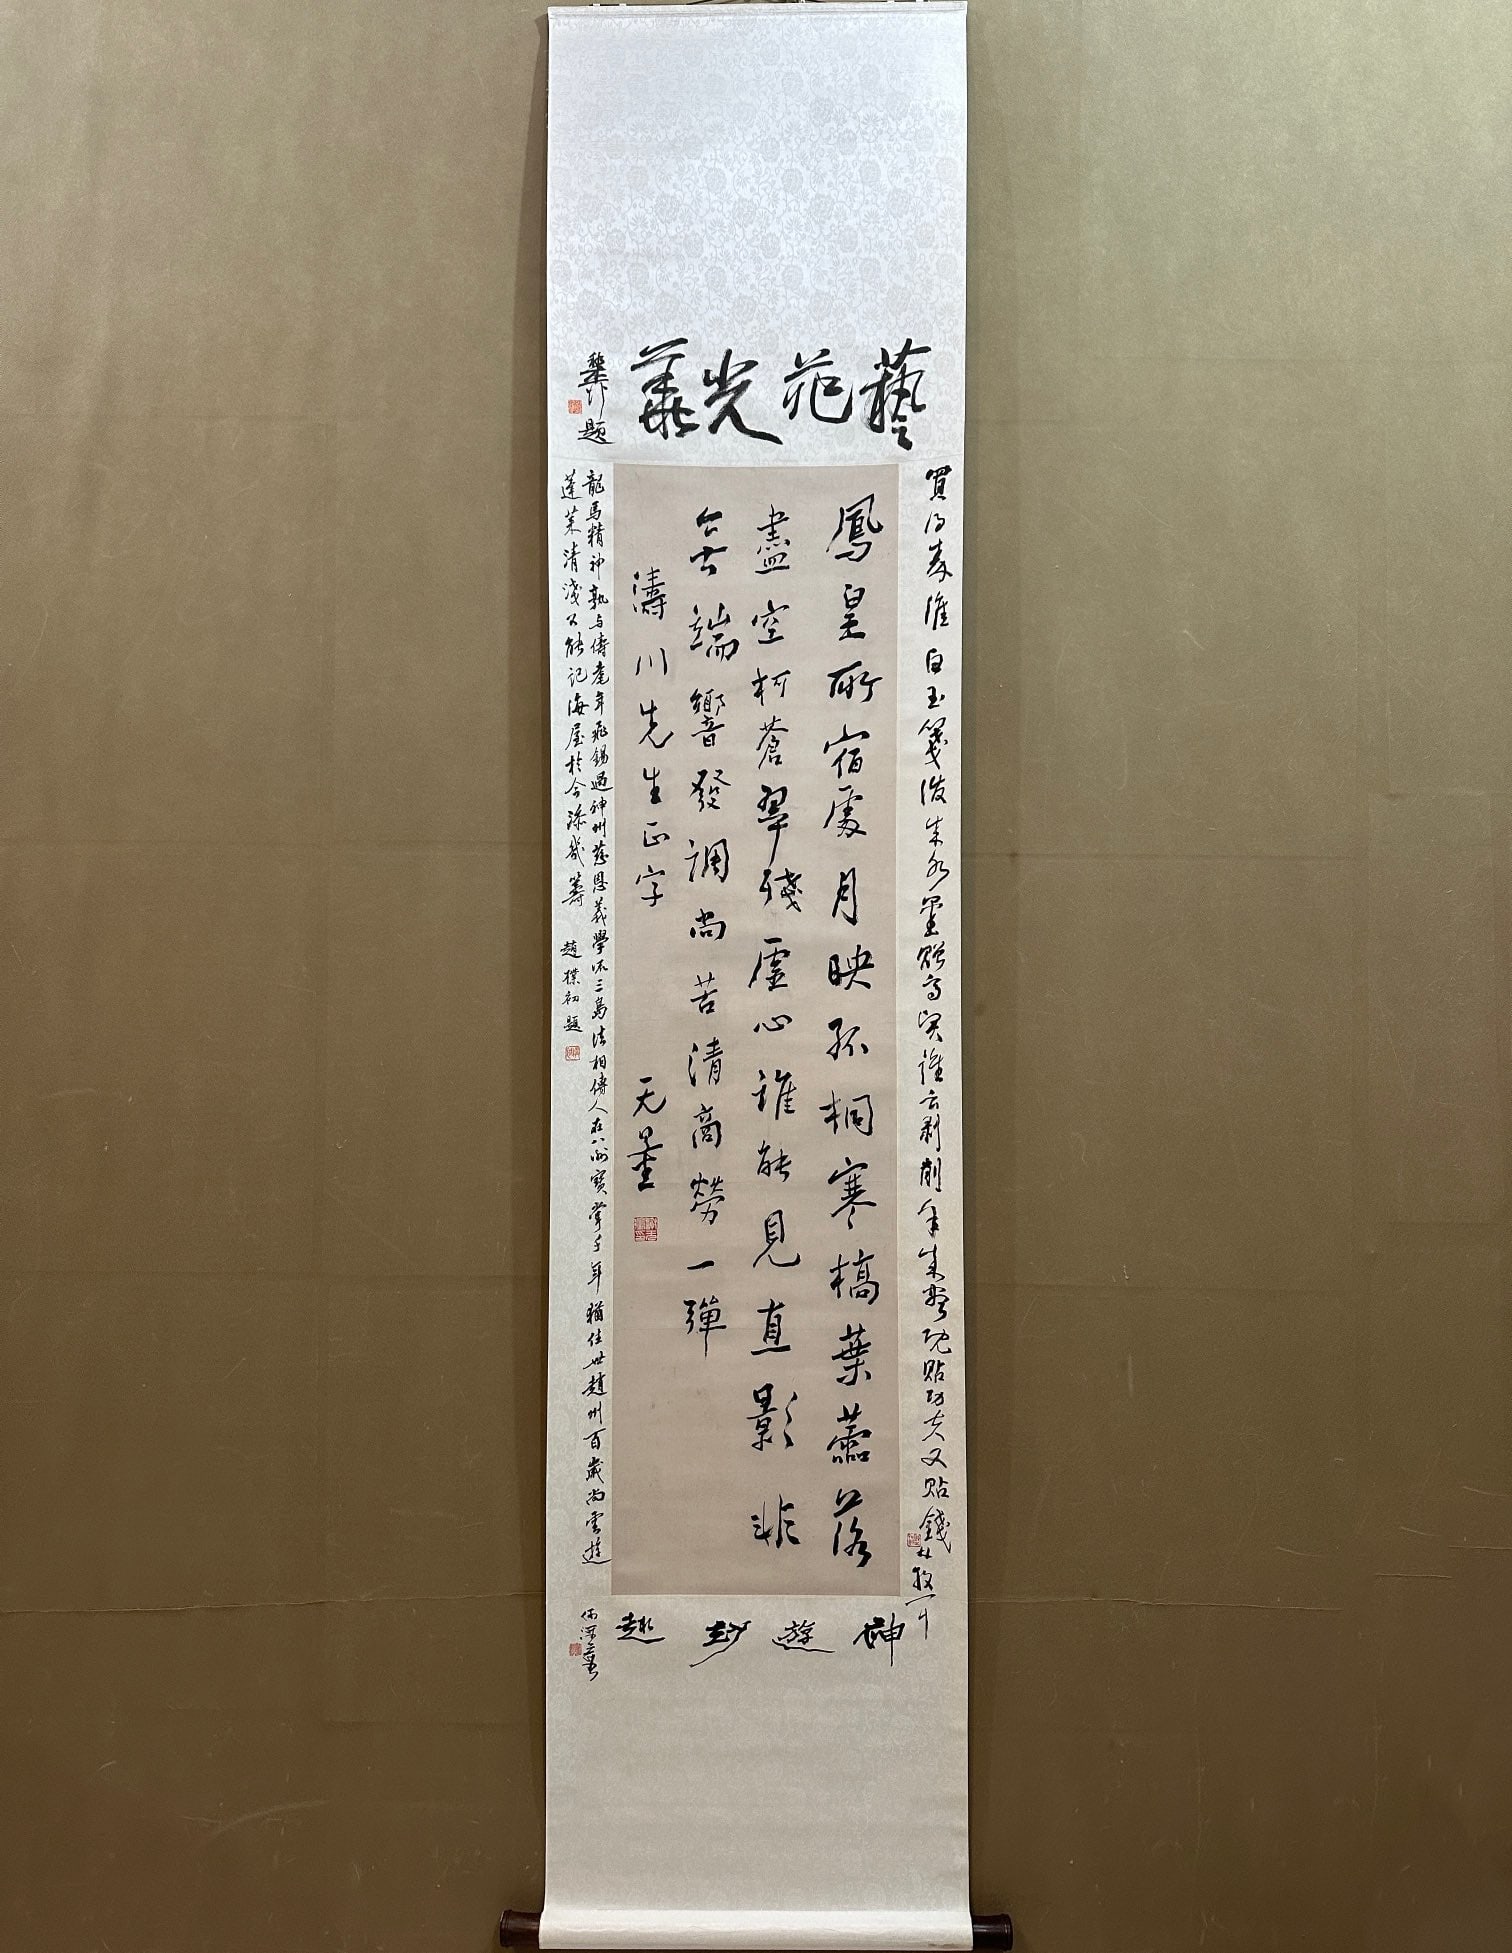 藝苑光華
題
買得 白玉箋 來水墨贈高賢誰云剝削年來 既貼功夫又貼錢 林散耳
鳳皇所宿處月映孤桐寒槁葉蘦落
盡空柯蒼翠殘虛心誰能見直影非
無端響發調尚苦清商勞一彈
濤川先生正字 无量
龍馬精神孰与儔耄年飛錫過神州慈恩義學 三島法相傳人在八洲寶掌千年猶住世趙州百歲尚雲遊
蓬萊清淺公能記海屋於今添幾籌 趙樸初題
神遊妙趣